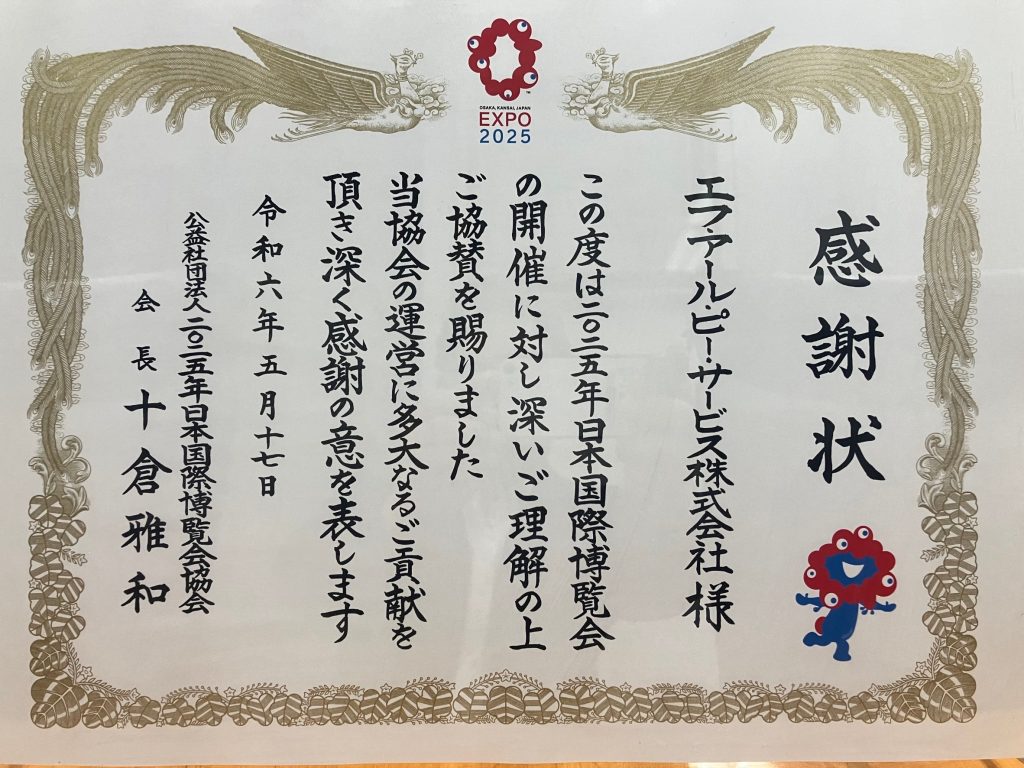 OSAKA, KANSAI, JAPAN
EXPO
2025
感謝状
エフ・アール・ピー・サービス株式会社 様
この度は二〇二五年日本国際博覧会
の開催に対し深いご理解の上
ご協賛を賜りました
当協会の運営に多大なるご貢献を
頂き深く感謝の意を表します
令和六年五月十七日
公益社団法人二〇二五年日本国際博覧会協会
会長 十倉雅和